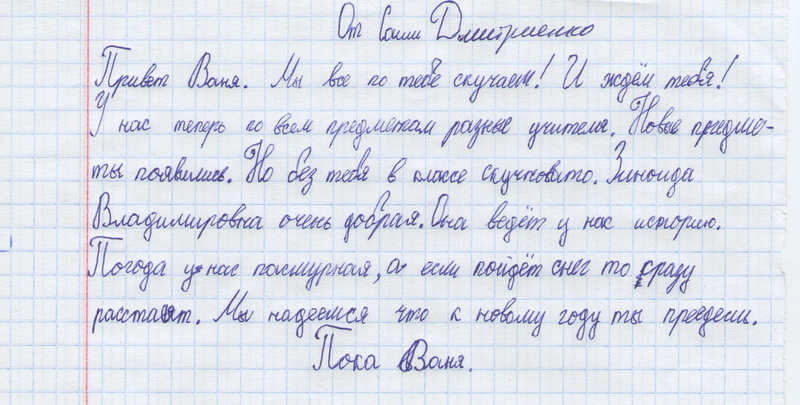 От Саши Дмитриенко
Привет Ваня. Мы все по тебе скучаем! И ждём тебя!
У нас теперь по всем предметам разные учителя. Новые предме-
ты появились. Но без тебя в классе скучновато. Зиноида
Владимировна очень добрая. Она ведёт у нас историю.
Погода у нас пасмурная, а если пойдёт снег то сразу
расстаит. Мы надеемся что к новому году ты преедеш.
Пока Ваня.